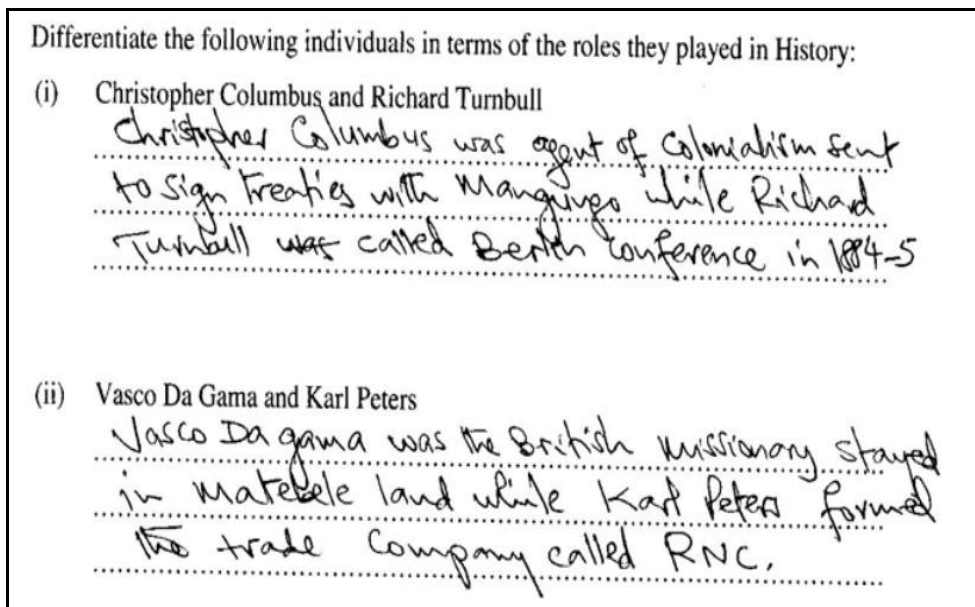 Differentiate the following individuals in terms of the roles they played in History:
(i) Christopher Columbus and Richard Turnbull
Christopher Columbus was agent of Colonialism sent
to sign treaties with Mangungo while Richard
Turnbull was called Berlin Conference in 1884-5
(ii) Vasco Da Gama and Karl Peters
Vasco Da gama was the British missionary stayed
in matebele land while Karl Peters formed
the trade Company called RNC.